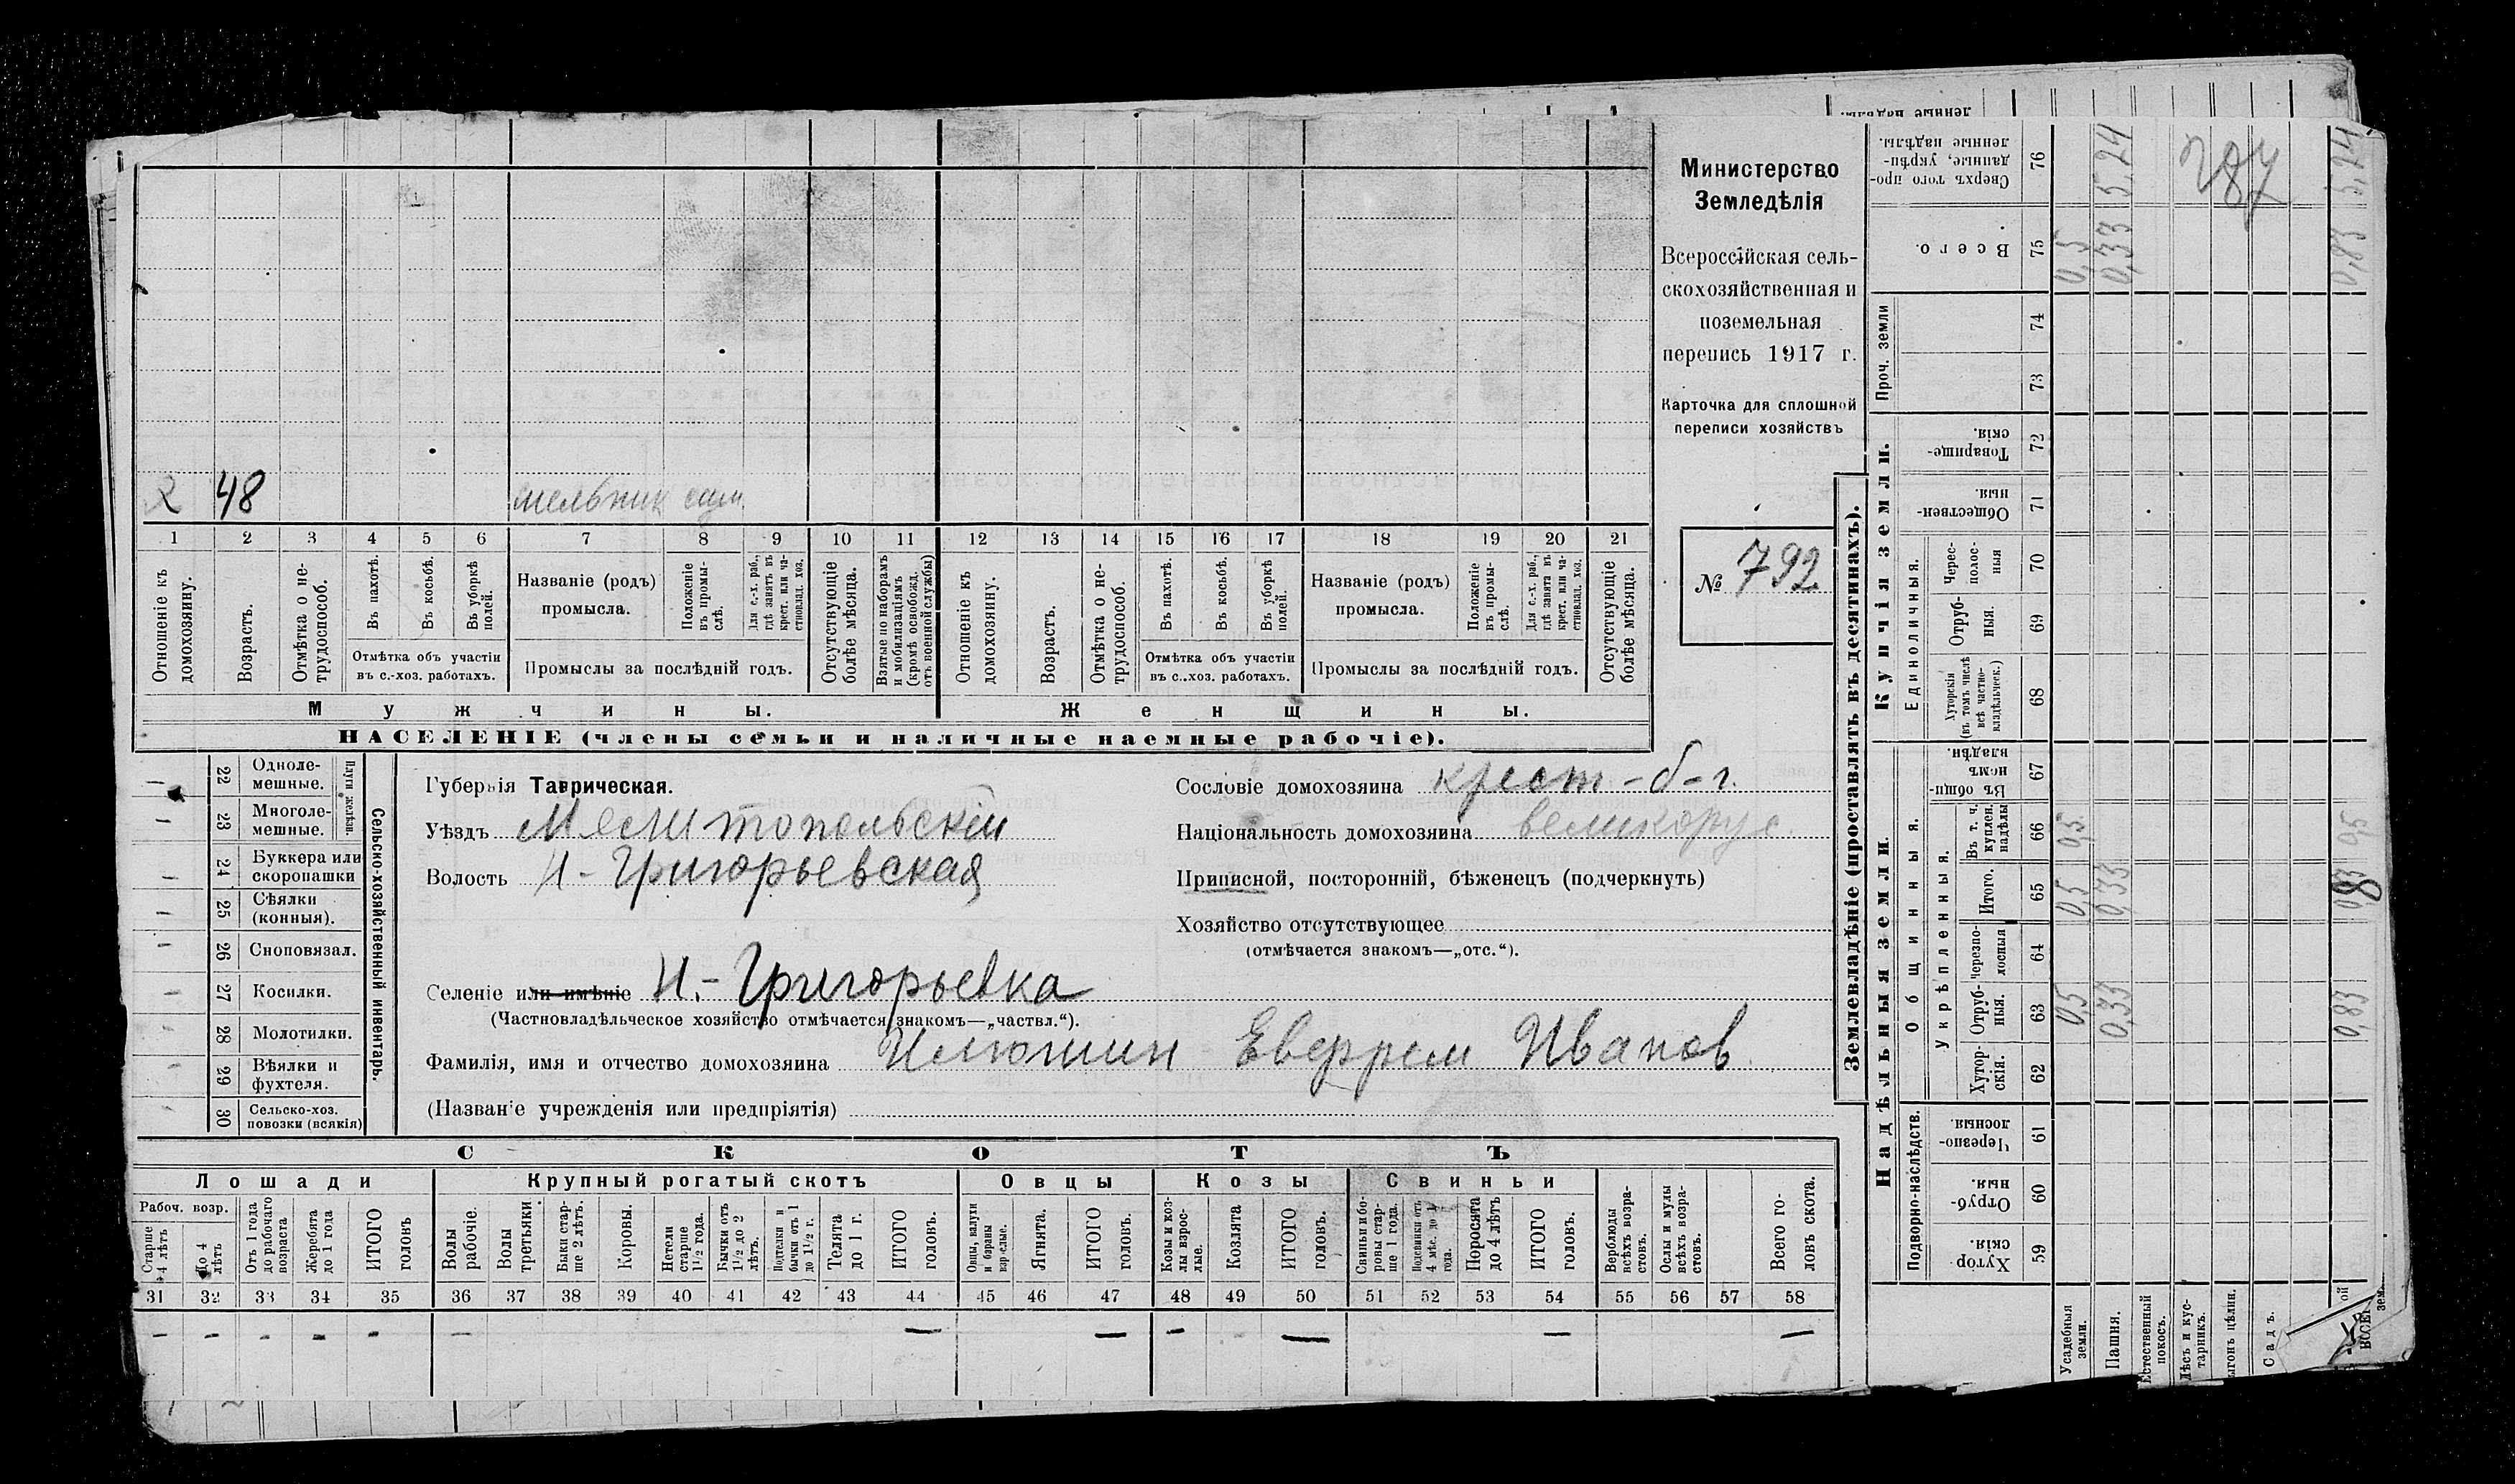 2 48 мельник
1 2 3 4 5 6 7 8 9 10 11 12 13 14 15 16 17 18 19 20 21
Отношеніе къ домохозяину.
Возрастъ.
Отмѣтка о нетрудоспособ.
Въ пахотѣ.
Въ косьбѣ.
Въ уборкѣ полей.
Отмѣтка объ участіи
въ с.-хоз. работахъ.
Названіе (родъ)
промысла.
Положеніе въ промыслѣ.
Для с.-х. раб., гдѣ занятъ въ крест. или частновлад. хоз.
Промыслы за послѣдній годъ.
Отсутствующіе болѣе мѣсяца.
Взятые по наборамъ и мобилизаціямъ (кромѣ освобожд. отъ военной службы)
Отношеніе къ домохозяину.
Возрастъ.
Отмѣтка о нетрудоспособ.
Въ пахотѣ.
Въ косьбѣ.
Въ уборкѣ полей.
Отмѣтка объ участіи
въ с.-хоз. работахъ.
Названіе (родъ)
промысла.
Положеніе въ промыслѣ.
Для с.-х. раб., гдѣ занята въ крест. или частновлад. хоз.
Промыслы за послѣдній годъ.
Отсутствующіе болѣе мѣсяца.
Мужчины. Женщины.
НАСЕЛЕНІЕ (члены семьи и наличные наемные рабочіе).
Министерство
Земледѣлія
Всероссійская сель-
скохозяйственная и
поземельная
перепись 1917 г.
Карточка для сплошной
переписи хозяйствъ
№ 792
22 Одноле-
мешные.
23 Многоле-
мешные.
Плуги желѣзн.
24 Буккера или
скоропашки
25 Сѣялки
(конныя).
26 Сноповязал.
27 Косилки.
28 Молотилки.
29 Вѣялки и
фухтеля.
30 Сельско-хоз.
повозки (всякія)
Сельско-хозяйственный инвентарь.
Губернія Таврическая.
Уѣздъ Мелитопольскій
Волость Н-Григорьевская
Селеніе или имѣніе Н.-Григорьевка
(Частновладѣльческое хозяйство отмѣчается знакомъ—„частвл.“).
Фамилія, имя и отчество домохозяина Илюшин Евррем Иванов
(Названіе учрежденія или предпріятія)
Сословіе домохозяина крест-б-г.
Національность домохозяина великорус
Приписной, посторонній, бѣженецъ (подчеркнуть)
Хозяйство отсутствующее
(отмѣчается знакомъ—„отс.“).
СКОТЪ
Лошади Крупный рогатый скотъ Овцы Козы Свиньи
Рабоч. возр.
Старше 4 лѣтъ
До 4 лѣтъ
Отъ 1 года до рабочаго возраста
Жеребята до 1 года
ИТОГО головъ
Волы рабочіе.
Волы третьяки
Быки старше 2 лѣтъ.
Коровы.
Нетели старше 1½ года.
Бычки отъ 1½ до 2 лѣтъ.
Подтелки и бычки отъ 1 до 1½ г.
Телята до 1 г.
ИТОГО головъ.
Овцы, валухи и бараны взрослые.
Ягнята.
ИТОГО головъ.
Козы и козлы взрослые.
Козлята
ИТОГО головъ.
Свиньи и боровы старше 1 года.
Подсвинки отъ 4 мѣс. до 1 года.
Поросята до 4 лѣтъ
ИТОГО головъ.
Верблюды всѣхъ возрастовъ.
Ослы и мулы всѣхъ возрастовъ.
Всего головъ скота.
31 32 33 34 35 36 37 38 39 40 41 42 43 44 45 46 47 48 49 50 51 52 53 54 55 56 57 58
– – – – – – – – – – – –
Землевладѣніе (проставлять въ десятинахъ).
Сверхъ того проданные, укрѣпленные надѣлы. 76 5,24 5,24
287
Всего. 75 0,5 0,33 0,83
Проч. земли 74 73
Купчія земли.
Товарищескія. 72
Общественныя. 71
Единоличныя.
Чересполосныя 70
Отрубныя. 69
Хуторскія (въ томъ числѣ всѣ частновладѣльческ.) 68
Надѣльныя земли.
Общинныя.
Въ общинномъ владѣн. 67
Укрѣпленныя.
Въ т. ч. куплен. надѣлы 66 0,5 0,5
Итого. 65 0,5 0,33
Черезполосныя 64
Отрубныя. 63 0,5 0,33 0,83
Хуторскія. 62
Подворно-наслѣдств.
Черезполосныя. 61
Отрубныя. 60
Хуторскія. 59
Усадебныя земли.
Пашня.
Естественный покосъ.
Лѣсъ и кустарникъ.
Садъ.